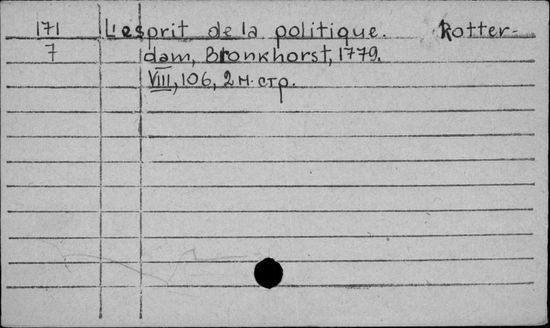 171 L'esprit de la politique. Rotter-
7 dam, Bronkhorst, 1779.
VIII, 106, 2 н. стр.